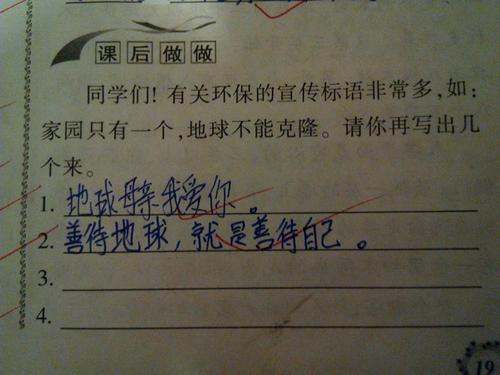 课后做做
同学们！有关环保的宣传标语非常多，如：
家园只有一个，地球不能克隆。请你再写出几
个来。
1. 地球母亲我爱你。
2. 善待地球，就是善待自己。
3.
4.
19